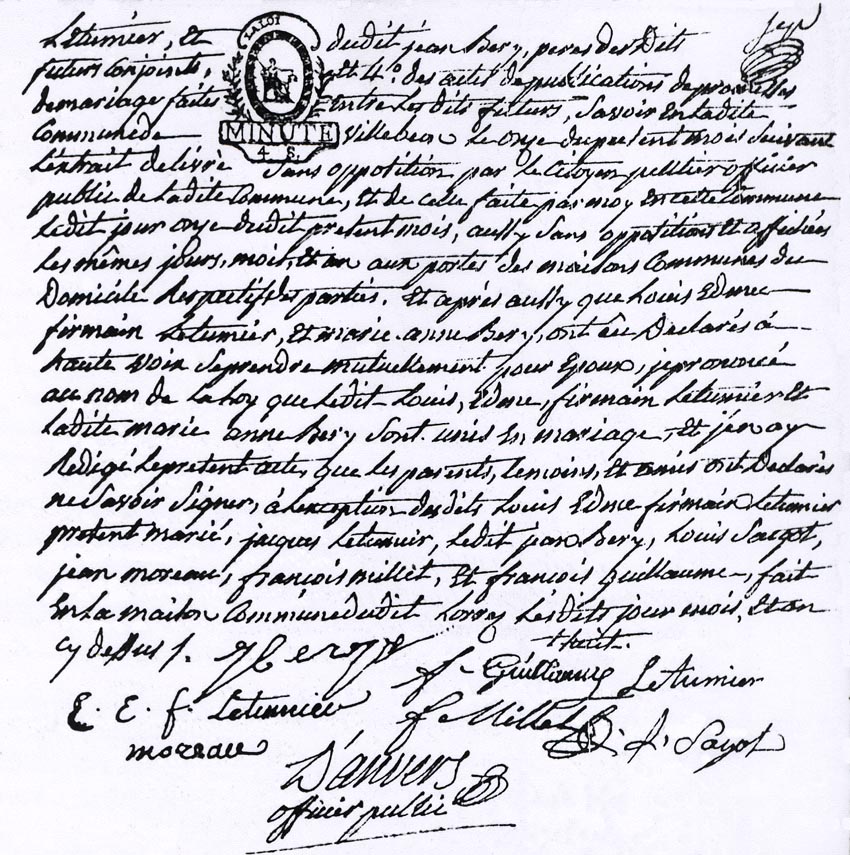 Letumier, Et dudit jean Bery, peres des Dits
futurs Conjoints, Et 4°. des actes de publications de promesses
de mariage faites Entre Les dits futurs, Savoir En Ladite
Commune de Villebeon Le onze du present mois Suivant
L'extrait delivré Sans oppotition par le Citoyen pelltier officier
public de Ladite Commune, Et de celle faite par moy En cette Commune
Ledit jour onze dudit present mois, aussy Sans oppotitions Et affichées
Les mêmes jours, mois, Et an aux portes des maisons Communes du
Domicile Respectif des parties. Et après aussy que Louis Edme
firmain Letumier, Et marie anne Bery, ont êu Declarés à
haute voix Se prendre mutuellement pour Epoux, je prononcé
au nom de La Loy que Ledit Louis, Edme, firmain Letumier Et
Ladite marie anne Bery Sont unis En mariage, Et j'en ay
Redigé Le present acte, que les parents, temoins, Et amis ont Declarés
ne Savoir Signer, à L'exception desdits Louis Edme firmain Letumier
present marié, jacques Letumier, Ledit jean Bery, Louis Sagot,
jean moreau, françois millet, Et françois Guillaume, fait
En La maison Commune dudit Lorrez Lesdits jour mois, Et an
cy dessus
f. Guillaume Letumier
L. E. f. Letumier f Millet L. Sagot
moreau
Danvers
officier public
LA LOI
MINUTE
4 S.